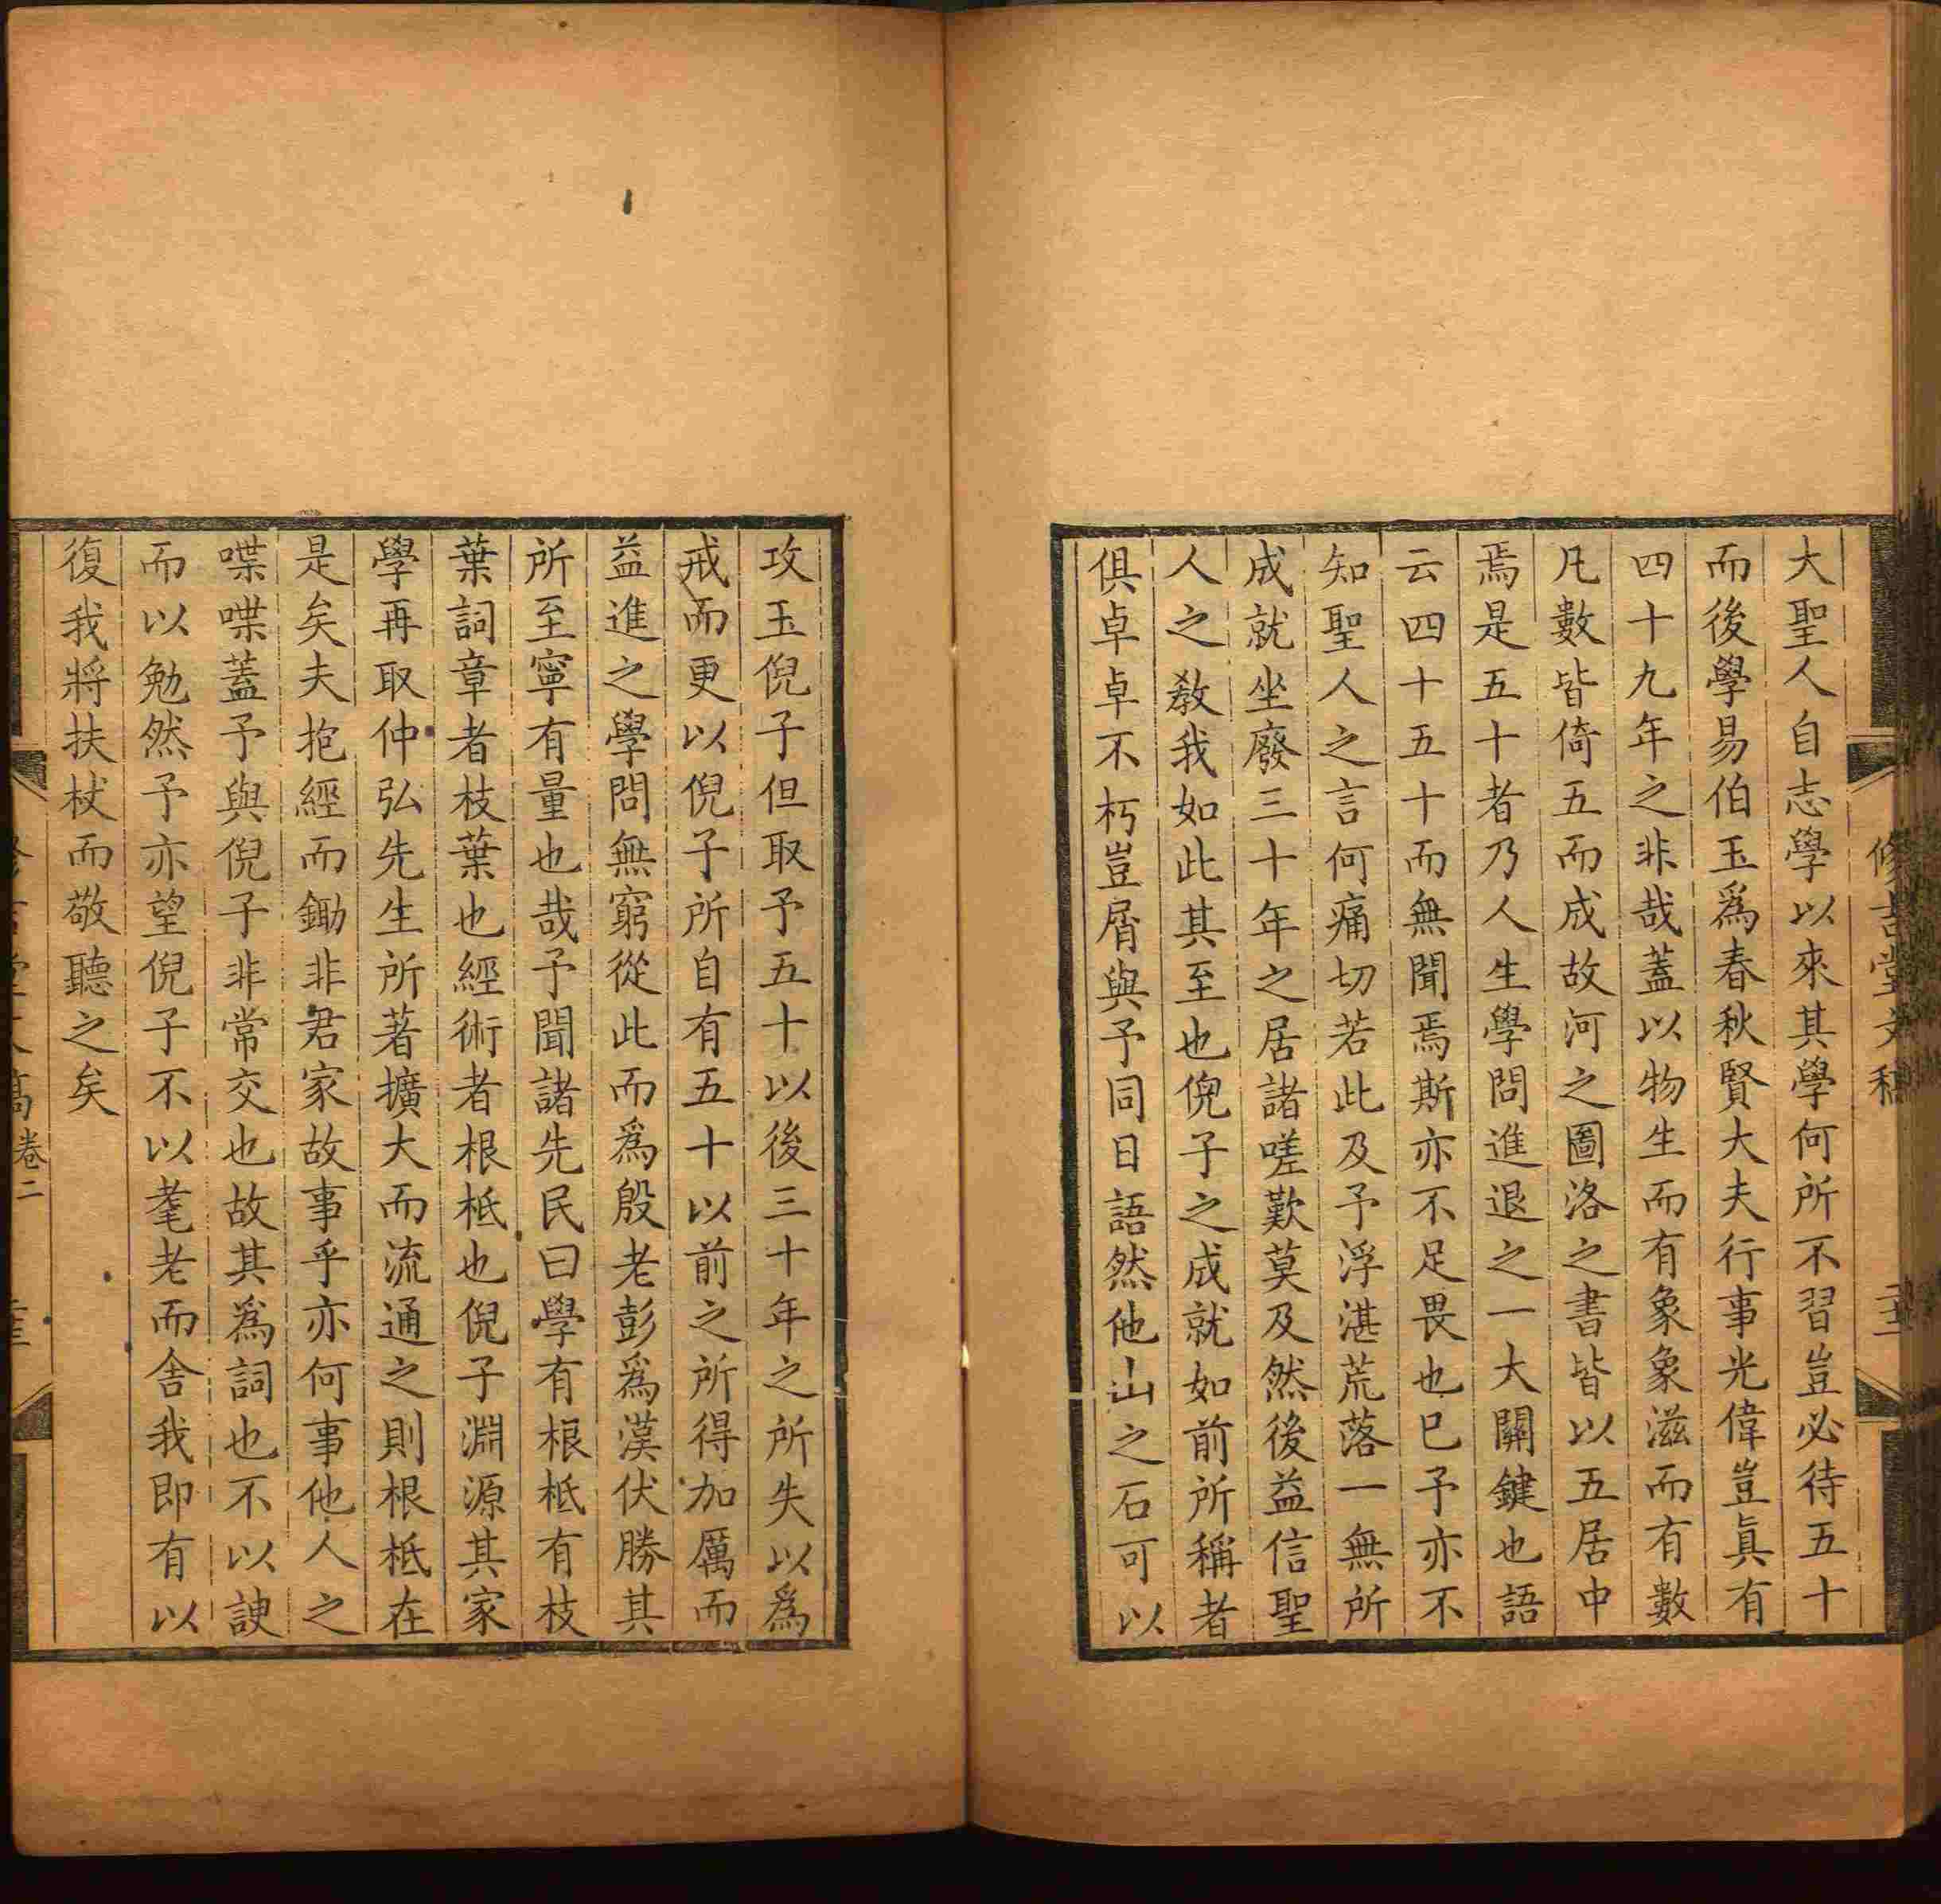 大聖人自志學以來其學何所不習豈必待五十
而後學易伯玉爲春秋賢大夫行事光偉豈眞有
四十九年之非哉蓋以物生而有象象滋而有數
凡數皆倚五而成故河之圖洛之書皆以五居中
焉是五十者乃人生學問進退之一大關鍵也語
云四十五十而無聞焉斯亦不足畏也已予亦不
知聖人之言何痛切若此及予浮湛荒落一無所
成就坐廢三十年之居諸嗟歎莫及然後益信聖
人之教我如此其至也倪子之成就如前所稱者
俱卓卓不朽豈屑與予同日語然他山之石可以
攻玉倪子但取予五十以後三十年之所失以爲
戒而更以倪子所自有五十以前之所得加厲而
益進之學問無窮從此而爲殷老彭爲漢伏勝其
所至寧有量也哉予聞諸先民曰學有根柢有枝
葉詞章者枝葉也經術者根柢也倪子淵源其家
學再取仲弘先生所著擴大而流通之則根柢在
是矣夫抱經而鋤非君家故事乎亦何事他人之
喋喋蓋予與倪子非常交也故其爲詞也不以諛
而以勉然予亦望倪子不以耄老而舍我即有以
復我將扶杖而敬聽之矣
卷二